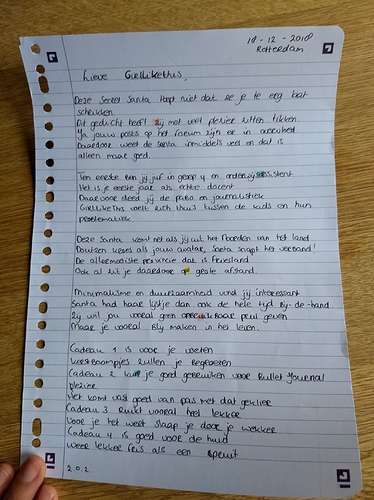 18-12-2018
Rotterdam
Lieve Gielliekethis,
Deze Secret Santa hoopt niet dat ze je te erg laat
schrikken
Dit gedicht heeft zij met veel plezier zitten tikken
Ja jouw posts op het forum zijn er in
Daardoor weet de Santa inmiddels veel en dat is
alleen maar goed.
Ten eerste ben jij juf in groep 4 en
Het is je eerste jaar als echte docent
Daarvoor deed jij de pabo en journalistiek
voelt zich thuis tussen de kids en hun
problematiek
Deze Santa komt net als jij uit het Noorden van het land
Doutzen Kroes als jouw avatar, Santa snapt het verband!
De allermooiste provincie dat is Friesland
Ook al zit je daardoor op grote afstand.
Minimalisme en duurzaamheid vond jij interessant
Santa had haar lijstje dan ook de hele tijd bij-de-hand.
Zij wil jou vooral geen prul geven
Maar je vooral blij maken in het leven.
Cadeau 1 is voor je voeten
Kerstboompjes zullen je begroeten
Cadeau 2 kun je goed gebruiken voor Bullet Journal
plezier
Het komt vast goed van pas met dat
Cadeau 3 ruikt vooral heel lekker
Voor je het weet slaap je door je wekker
Cadeau 4 is goed voor de huid
Weer lekker fris als een spruit
z.o.z.